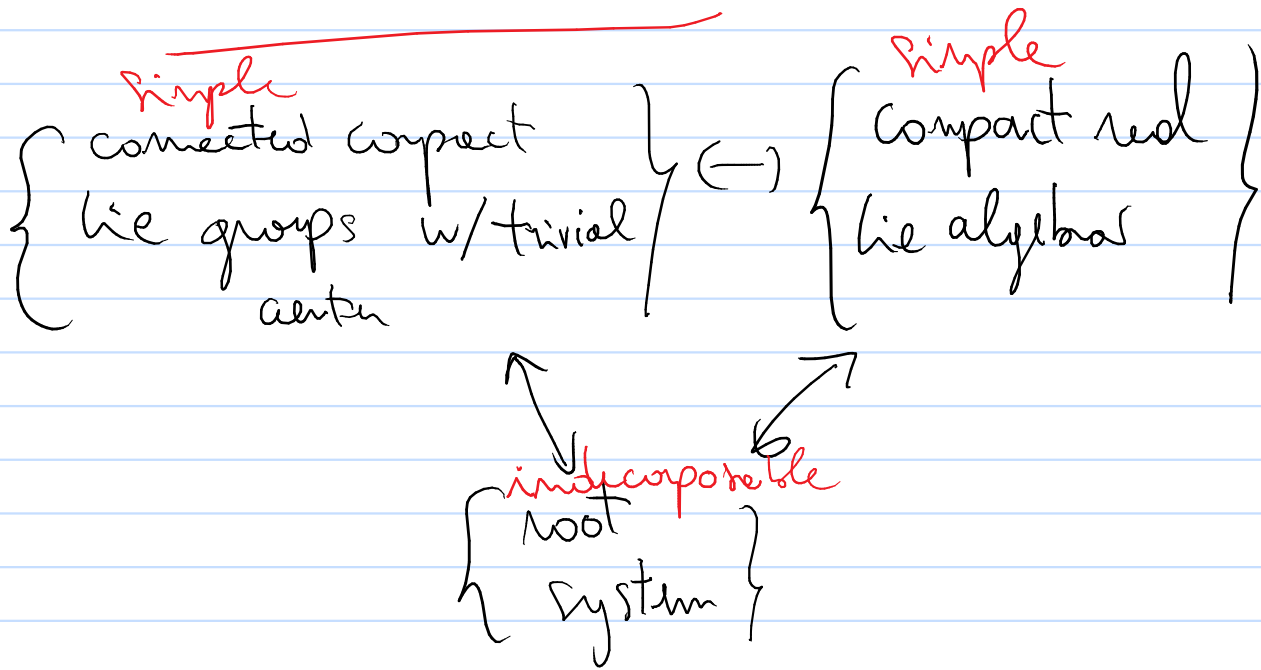 simple
connected compact
Lie groups w/ trivial
center
(—)
simple
compact real
Lie algebras
indecomposable
root
system